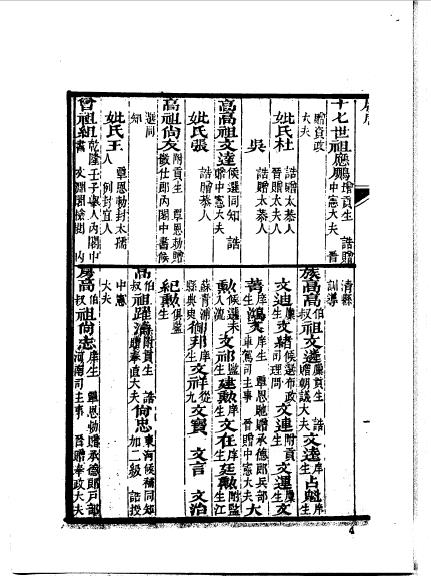 十七世祖應鵬增貢生 誥贈中憲大夫 晉
贈資政大夫
妣氏杜誥贈太恭人 誥贈太夫人
吳誥贈太恭人
高高祖文達候選同知 誥贈中憲大夫
妣氏張誥贈恭人
高祖尚友附貢生 覃恩勅贈徵仕郎內閣中書候
選同知
妣氏王覃恩勅封太孺人 例封宜人
曾祖組乾隆壬子舉人內閣中書 文淵閣檢閱 內
清縣訓導
族高高伯叔祖文遴廩貢生 誥贈朝議大夫 文逵庠生 占魁庠生
文迪廩生 文緒候選布政司理問 文連附貢生 文運廩生 文
著庠生 鴻文庠生 覃恩貤贈承德郎兵部車駕司主事 晉贈中憲大夫 大
勳候選未入流 文祁監生 建勳庠生 文在庠生 廷勳附監生江
蘇青浦縣典史 衛邦庠生 文祥從九 文寶 文言 文治
紀勳俱監生
高伯叔祖躍海附貢生 誥贈奉直大夫 尚忠東河候補同知加二級 誥授
中憲大夫
房高伯叔祖尚志庠生 覃恩勅贈承德郎戶部河南司主事 晉贈奉政大夫